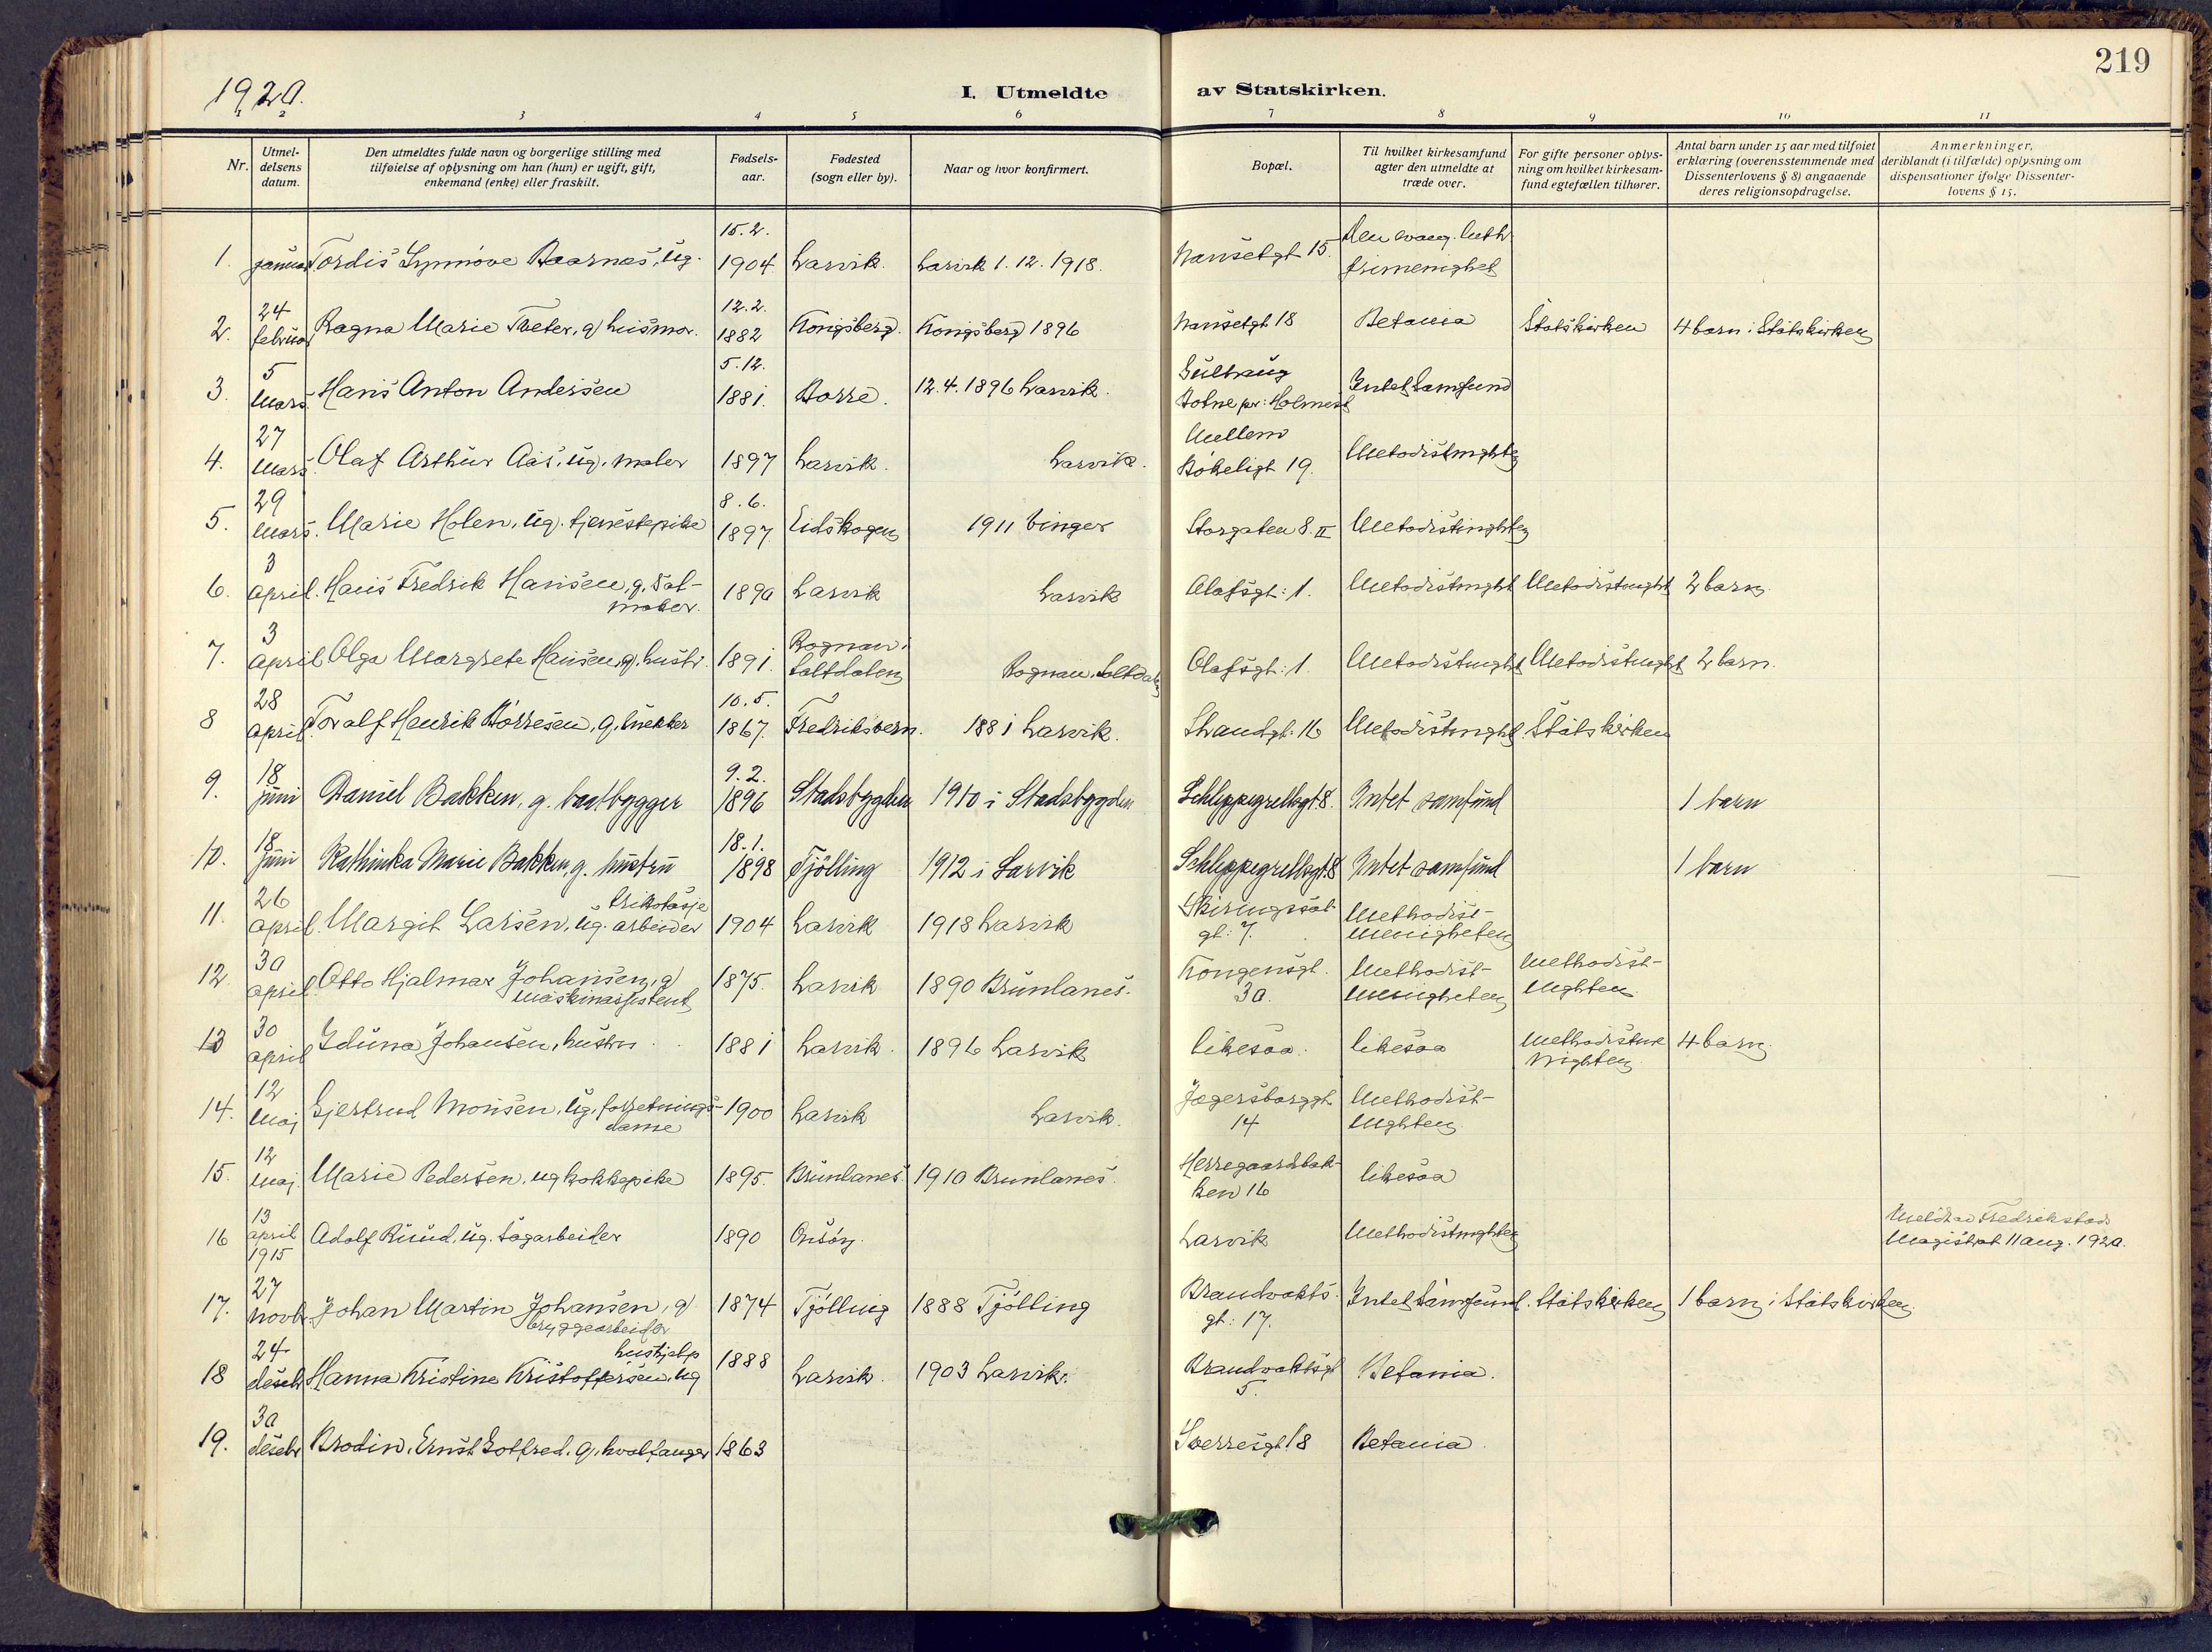 1920.
I. Utmeldte av Statskirken.
219
1 2 3 4 5 6 7 8 9 10 11
Nr.
Utmel-
delsens
datum.
Den utmeldtes fulde navn og borgerlige stilling med
tilføielse af oplysning om han (hun) er ugift, gift,
enkemand (enke) eller fraskilt.
Fødsels-
aar.
Fødested
(sogn eller by).
Naar og hvor konfirmert.
Bopæl.
Til hvilket kirkesamfund
agter den utmeldte at
træde over.
For gifte personer oplys-
ning om hvilket kirkesam-
fund egtefællen tilhører.
Antal barn under 15 aar med tilføiet
erklæring (overensstemmende med
Dissenterlovens § 8) angaaende
deres religionsopdragelse.
Anmerkninger,
deriblandt (i tilfælde) oplysning om
dispensationer ifølge Dissenter-
lovens § 15.
15.2. Den evang. luth.
1. januar Tordis Synnøve Baarnæs, ug. 1904 Larvik. Larvik 1.12.1918. Nansetgt 15. frimenighet
24 12.2.
2. februar Ragna Marie Tveter, g husmor. 1882 Kongsberg. Kongsberg 1896 Nansetgt 18 Betania Statskirken 4 barn i Statskirken
5 5.12.
3. Mars. Hans Anton Andersen 1881. Borre. 12.4.1896 Larvik. Botne pr: Holmest Intet Samfund
27 Mellem
4. Mars. Olaf Arthur Aas, ug. maler 1897 Larvik. Larvik. Bøkeligt 19. Metodistmghtn
29 8.6.
5. Mars. Marie Holen, ug. tjenestepike 1897 Eidskogen 1911 Vinger Storgaten 8. II Metodistmghtn
3
6. April. Hans Fredrik Hansen, g. Sal-
maker. 1890 Larvik Larvik Olafsgt: 1. Metodistmght Metodistmght 2 barn.
3 Rognan i
7. April Olga Margrete Hansen, g. hustr. 1891 Saltdalen Rognan, Saltdalen Olafsgt: 1. Metodistmght Metodistmght 2 barn.
28 10.5.
8 April. Toralf Henrik Børresen, g. snekker 1867. Fredriksvern. 1881 Larvik. Strandgt: 16 Metodistmght Statskirken
18 9.2.
9. juni Daniel Bakken, g. baatbygger 1896 Stadsbygden 1910 i Stadsbygden Schleppegrellsgt 8. Intet samfund 1 barn
18 18.1.
10. juni Kathinka Marie Bakken, g. hustru 1898 Tjölling 1912 i Larvik Schleppegrellsgt. 8 Intet samfund 1 barn
26 trikotasje Skiringssal- Methodist-
11. April. Margit Larsen, ug. arbeider 1904 Larvik 1918 Larvik gt: 7. menigheten
30 Kongensgt. Methodist- Methodist-
12 April. Otto Hjalmar Johansen, g 1875. Larvik 1890 Brunlanes. 30. menigheten mghten
maskinassistent
30
13 April Iduna Johansen, hustru 1881 Larvik. 1896 Larvik likesaa. likesaa Methodistme 4 barn.
nighten
12 Jægersborggt. Methodist-
14. Maj Gjertrud Monsen, ug, forretnings- 1900 Larvik Larvik. 14 mghten
dame
12 Herregaardsbak-
15. Maj. Marie Pedersen, ug kokkepike 1895. Brunlanes. 1910 Brunlanes. ken 16 likesaa
13
16 April Adolf Ruud, ug. sagarbeider 1890 Onsøy. Larvik Methodistmghten Meldt av Fredrikstad
1915 Magistrat 11 aug. 1920.
27 Brandvakts-
17. Novbr. Johan Martin Johansen, g 1874 Tjølling 1888 Tjølling gt: 17. Intet Samfund. Statskirken 1 barn i Statskirken.
bryggearbeider
24 hushjelp
18 desebr Hanna Kristine Kristoffersen, ug 1888 Larvik. 1903 Larvik. Brandvaktsgt 5. Betania.
30
19. desebr Brodin, Ernst Gotfred. g, hvalfanger 1863 Sverresgt 18 Betania.